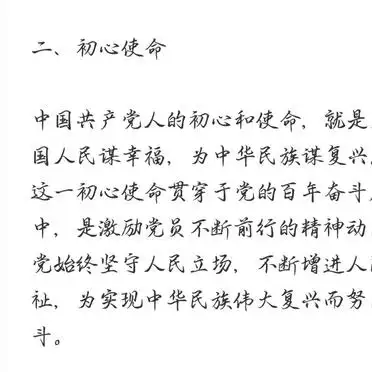 二、初心使命
中国共产党人的初心和使命，就是
国人民谋幸福，为中华民族谋复兴
这一初心使命贯穿于党的百年奋斗
中，是激励党员不断前行的精神动
党始终坚守人民立场，不断增进人
祉，为实现中华民族伟大复兴而努
斗。